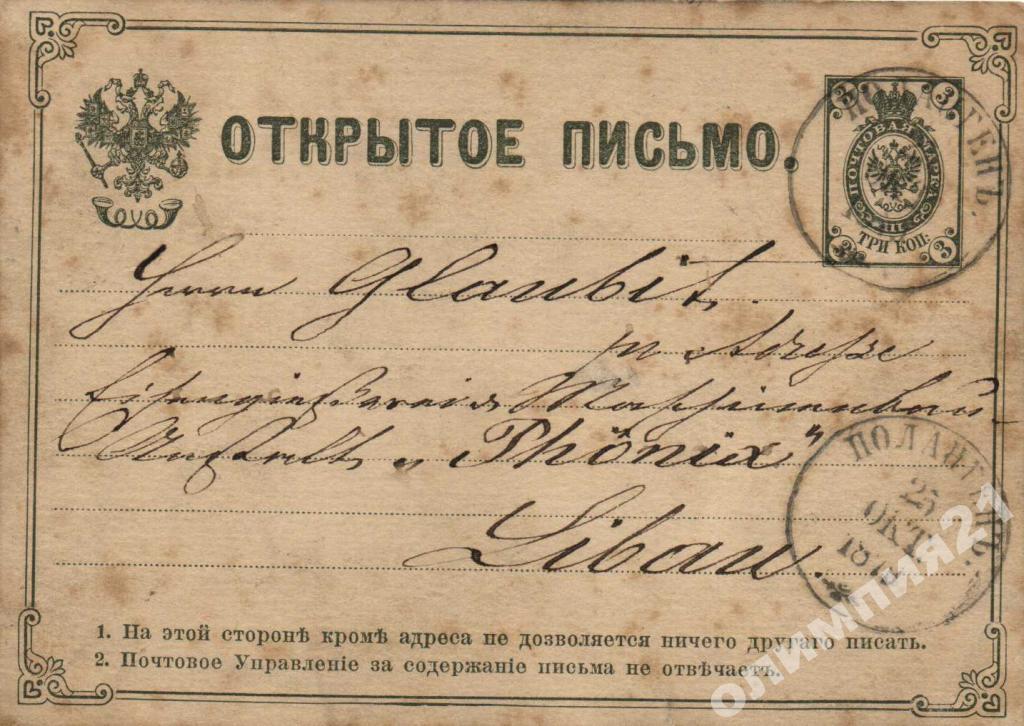 ОТКРЫТОЕ ПИСЬМО.
3 3
ПОЧТОВАЯ МАРКА
ТРИ КОП:
3 3
Herrn Glaubit
pr Adresse
Eisengießerei & Maschinenbau
Anstalt „Phönix"
Libau.
ПОЛАНГЕНЪ.
25
ОКТ
ПОЛАНГЕНЪ.
1. На этой сторонѣ кромѣ адреса не дозволяется ничего другаго писать.
2. Почтовое Управленіе за содержаніе письма не отвѣчаетъ.
олимпия21